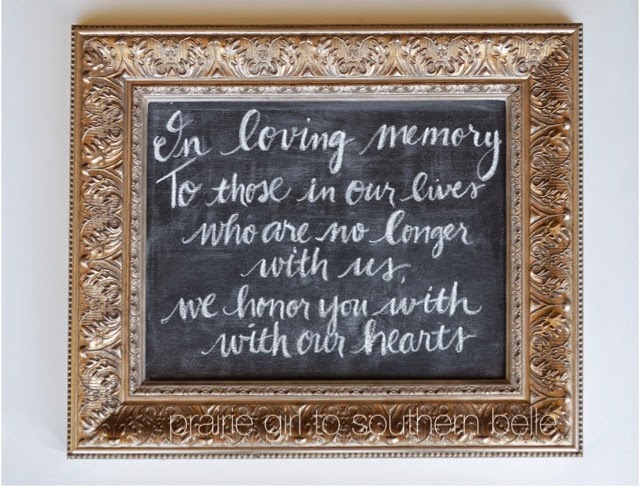 In loving memory
To those in our lives
who are no longer
with us,
we honor you with
with our hearts
prairie girl to southern belle